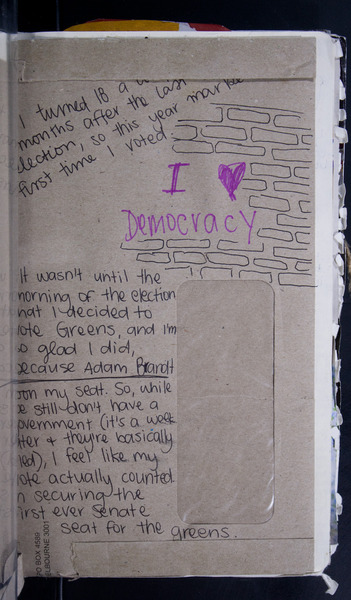 I turned 18 a
months after the last
election, so this year marked
first time I voted.
I ♥
Democracy
It wasn't until the
morning of the election
that I decided to
vote Greens, and I'm
so glad I did,
because Adam Brandt
won my seat. So, while
we still don't have a
government (it's a week
later & they're basically
tied), I feel like my
vote actually counted
in securing the
first ever Senate
seat for the greens.
PO BOX 4569
MELBOURNE 3001